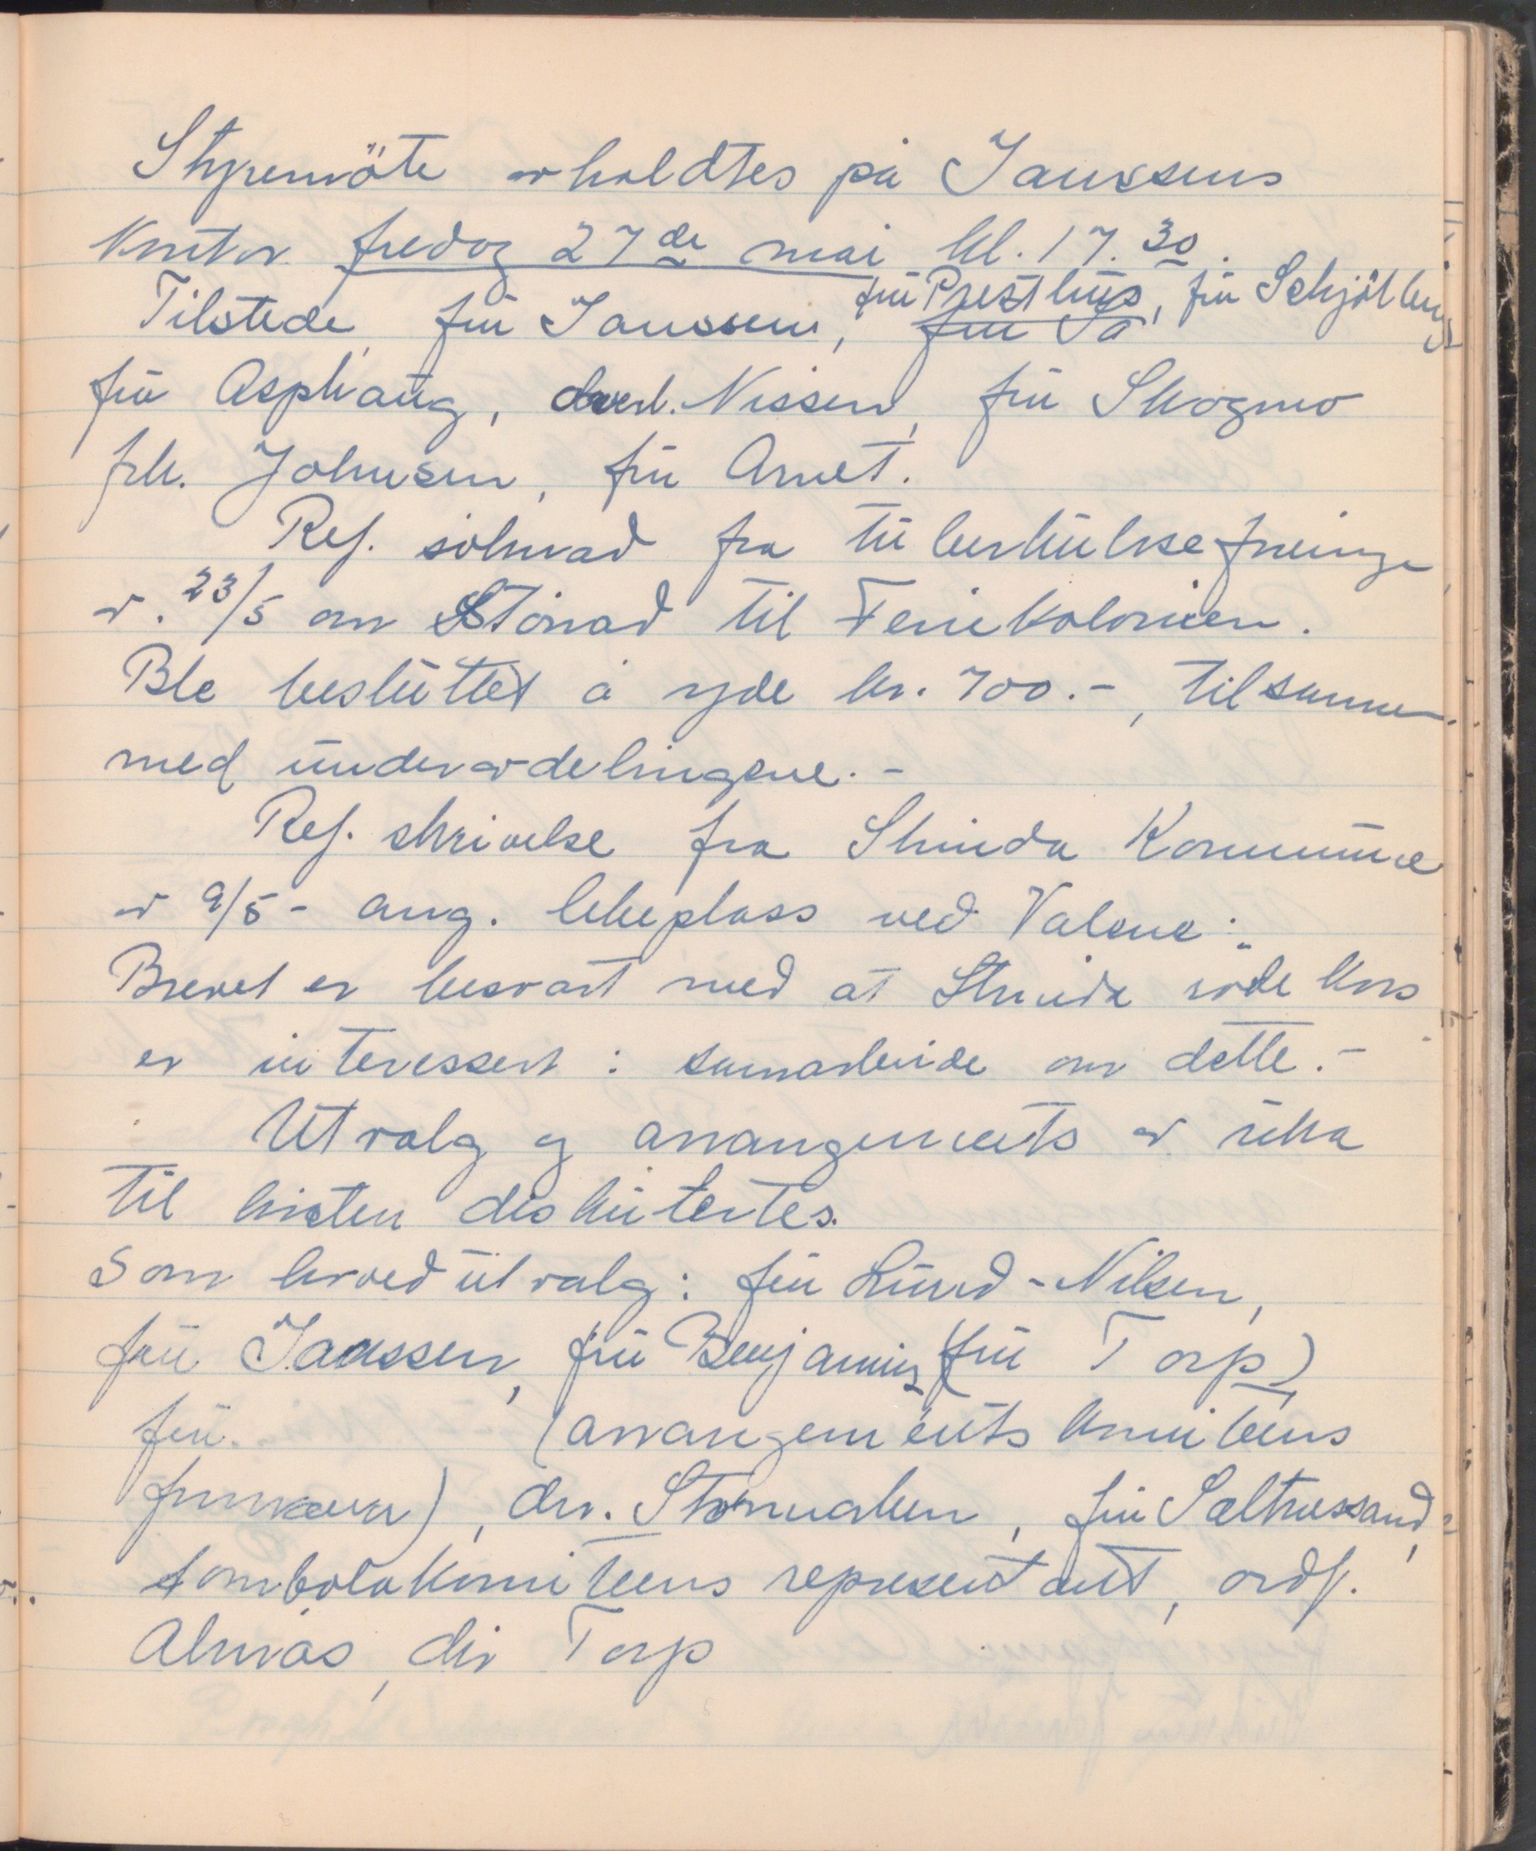 Styremöte avholdtes på Janssens
kontor fredag 27de mai kl. 17.30.
Tilstede frü Janssen, frü Presthus, frü Schjölberg
frü Asphaug, overl. Nissen, frü Skogmo
frk. Johnsen, frü Arnet.
Ref. söknad fra tüberkülose
av. 23/5 om Stönad til Feriekolonien.
Ble beslüttet å yde kr. 700.-, tilsammen
med ünderavdelingene. -
Ref. skrivelse fra Strinda Kommüne
av 9/5 - ang. lekeplass ved Valene:
Brevet er besvart med at Strinda röde kors
er interessert i samarbeide om dette. -
Utvalg og arrangements av üka
til hösten diskütertes.
Som hovedütvalg: frü Lünd-Nilsen,
frü Janssen, frü Benjamins (frü Torp)
frü. (arrangements komiteens
formann), dr. Stormaken, frü Saltnessand,
tombolakomiteens representant, ordf.
Almås, dir Torp